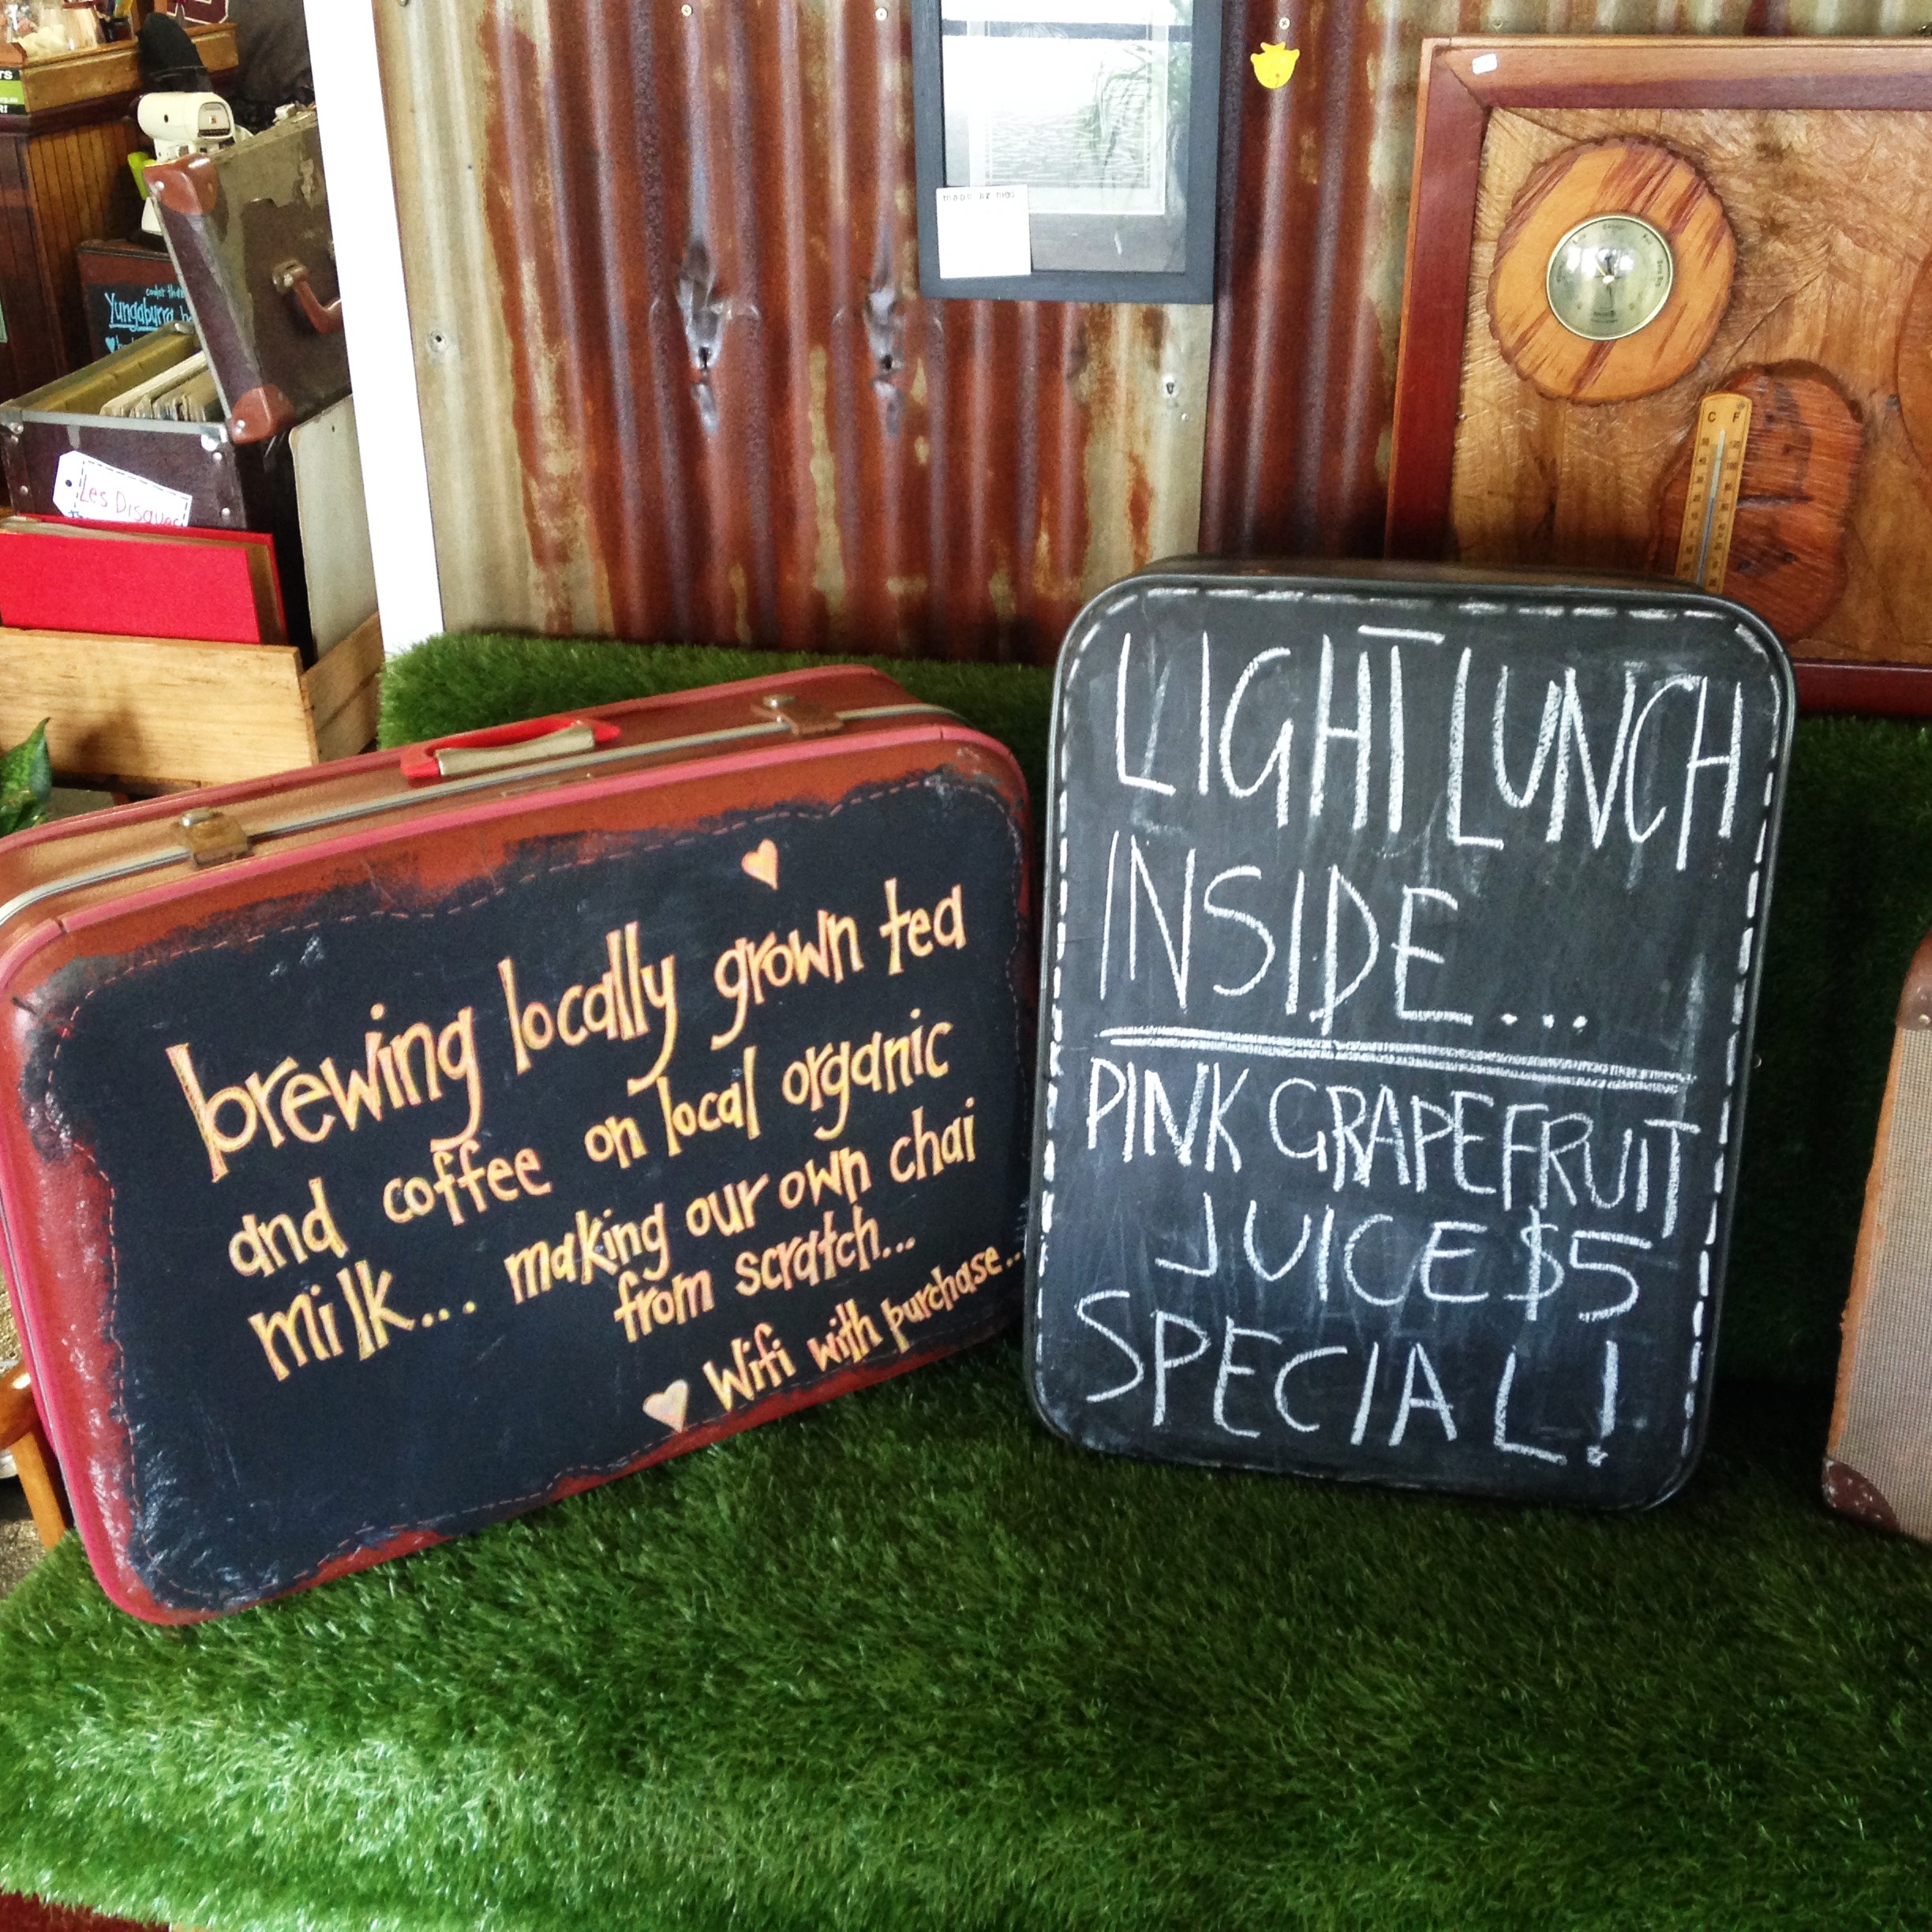 brewing locally grown tea
and coffee on local organic
milk... making our own chai
from scratch...
Wifi with purchase...
LIGHT LUNCH
INSIDE...
PINK GRAPEFRUIT
JUICE $5
SPECIAL!
Yungaburra
Les Disques
C F